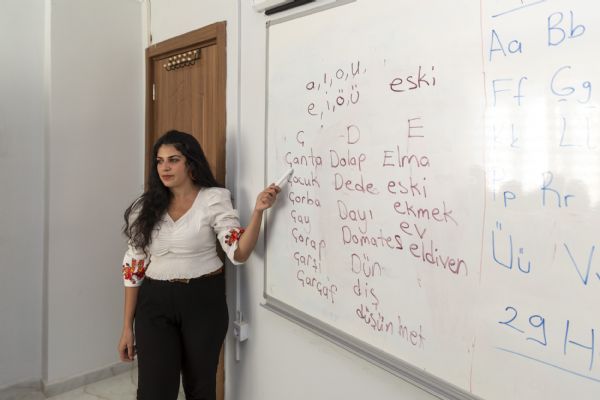 a, ı, o, u,
e, i, ö, ü
eski
Ç - D E
Çanta Dolap Elma
Çocuk Dede eski
Çorba Dayı ekmek
Çay Domates ev
Çorap Dün eldiven
Çarşı diş
Çarşaf düşün
Aa Bb
Ff Gg
Kk
Pp Rr
Üü
29 H